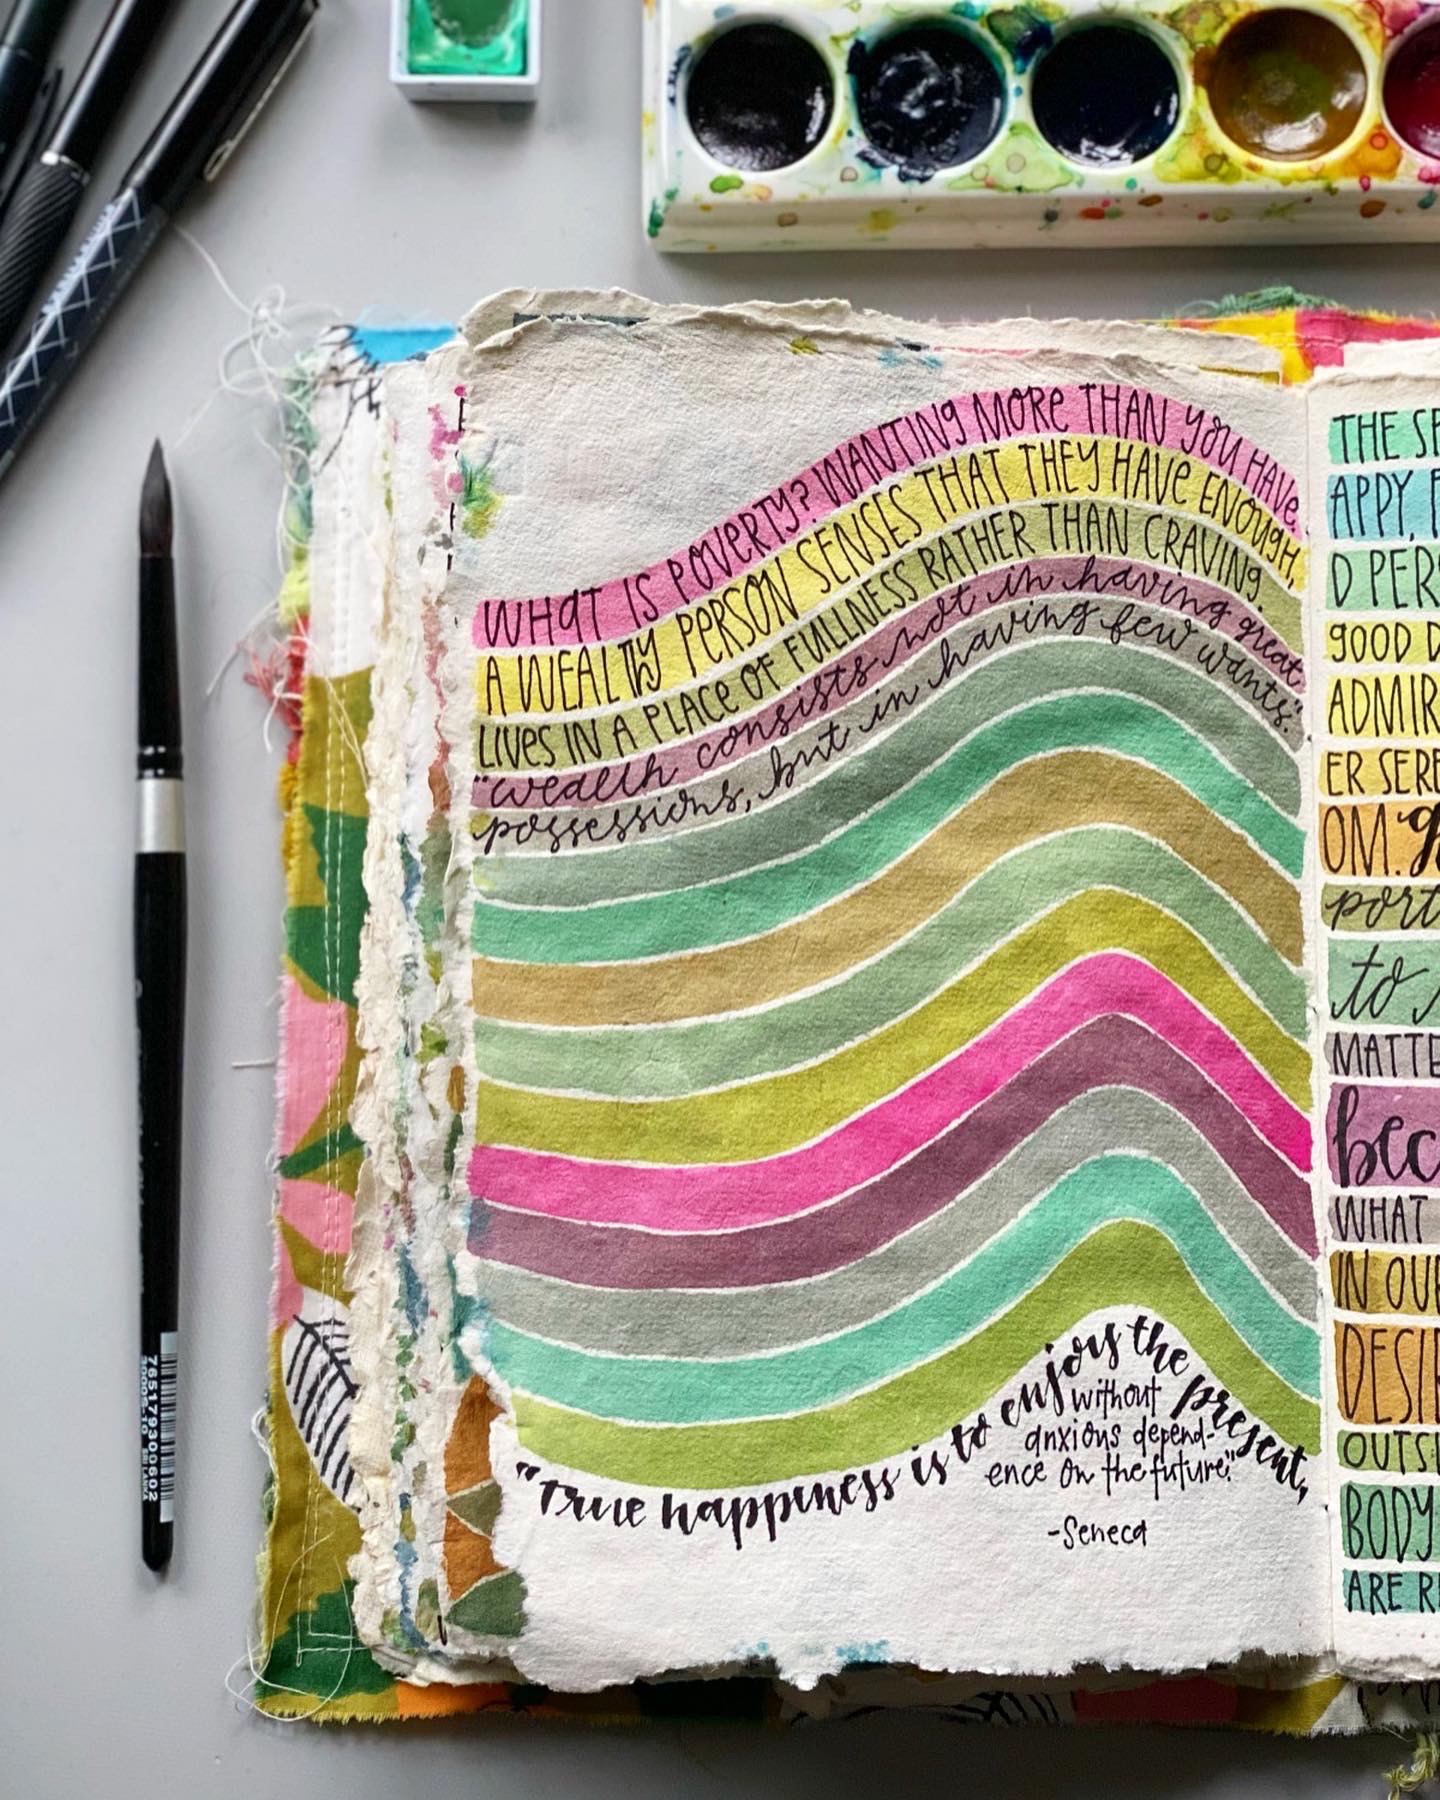 WHAT IS POVERTY? WANTING MORE THAN YOU HAVE.
A WEALTHY PERSON SENSES THAT THEY HAVE ENOUGH,
LIVES IN A PLACE OF FULLNESS RATHER THAN CRAVING.
"wealth consists not in having great
possessions, but in having few wants."
"True happiness is to enjoys the present,
without
anxious depend-
ence on the future."
-Seneca
THE SP
APPY,
D PERS
GOOD D
ADMIR
ER SERE
OM.
port
to
MATTE
bec
WHAT
IN OUR
DESIR
OUTSI
BODY
ARE RE
765179300602